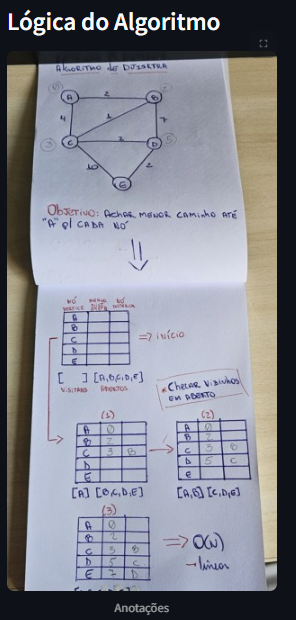 Lógica do Algoritmo
ALGORITMO DE DIJSKTRA
0 2
A 2 B
4 1 7
3 C 2 D 5
10 2
E
OBJETIVO: ACHAR MENOR CAMINHO ATÉ
"A" P/ CADA NÓ
NÓ NÓ
VÉRTICE
A
B
C
D
E
=> INÍCIO
[ ] [A,B,C,D,E]
VISITADOS ABERTOS
* CHECAR VIZINHOS
EM ABERTO
(1) (2)
A 0 A 0
B 2 B 2
C 3 B C 3 B
D D 5 C
E E
[A] [B,C,D,E] [A,B] [C,D,E]
(3)
A 0
B 2
C 3 B
D 5 C
E 7 D
=> O(N)
→ linear
Anotações